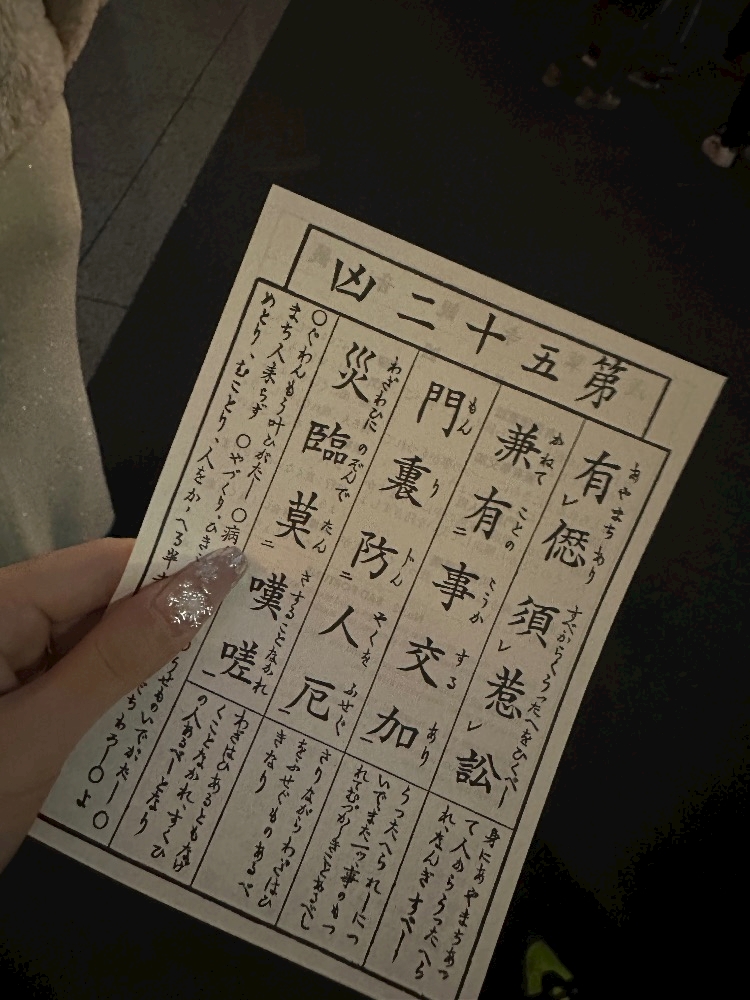 第五十二凶
有愆須惹訟
あやまちあり すべからくうったへをひくべし
兼有事交加
かねて ことの こうか する あり
門裏防人厄
もん り 人 やくを ふせぐ
災臨莫嘆嗟
わざわひに のぞんで たん さすることなかれ
身にあやまちあつ
て人からうったへら
れ、なんぎすべし
うったへられしにつ
いでまた一ツ事のもつ
れてむづかしきことあるべし
さりながらわざはひ
をふせぐものあるべ
きなり
わざはひあるともなげ
くことなかれすくひ
の人あるべしとなり
○ぐわんもう叶ひがたし ○病
まち人来らず ○やづくり、ひき
めとり、むことり、人をかゝへる半
うせものいでがたし ○
わろし ○よ